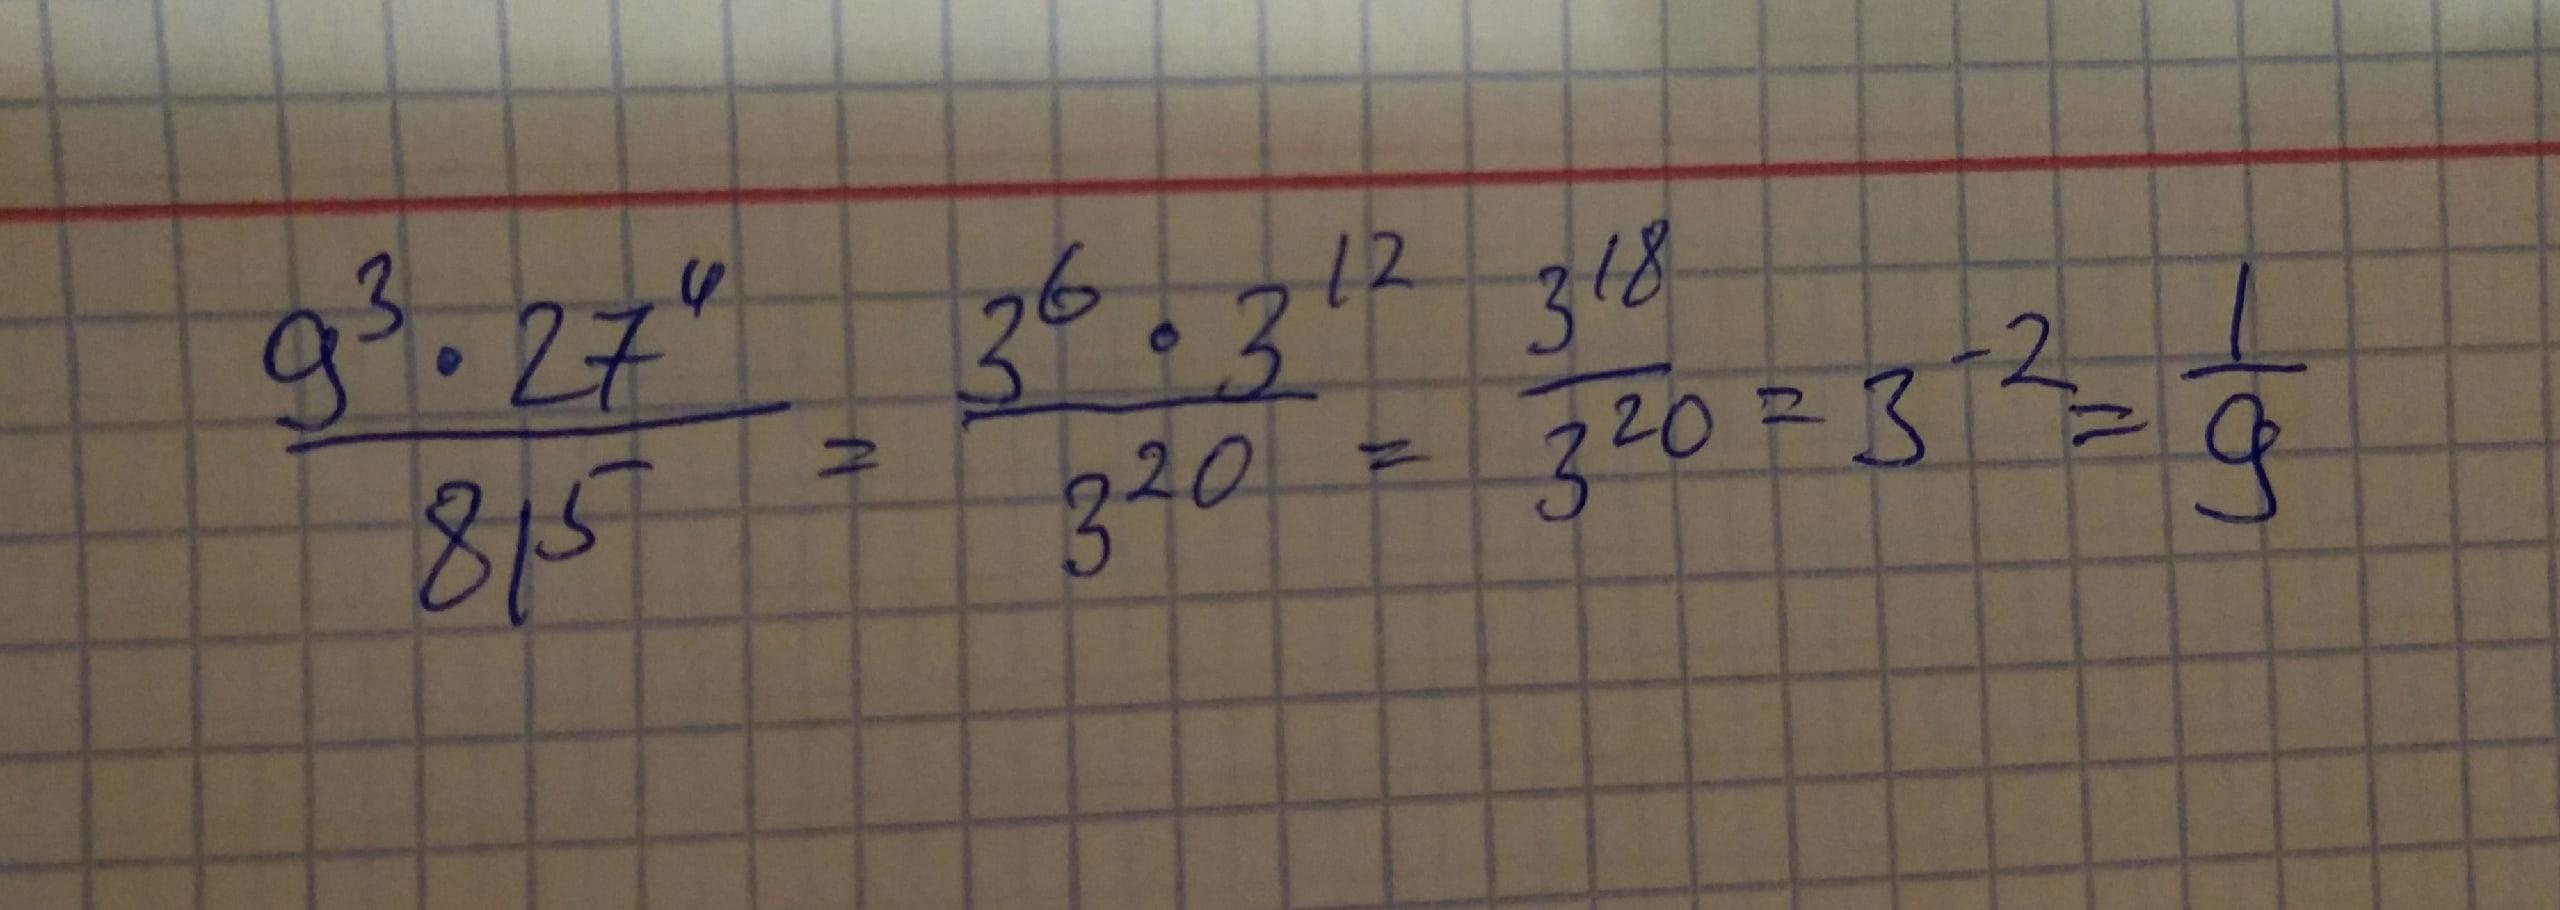 9³ · 27⁴ / 81⁵ = 3⁶ · 3¹² / 3²⁰ = 3¹⁸ / 3²⁰ = 3⁻² = 1/9